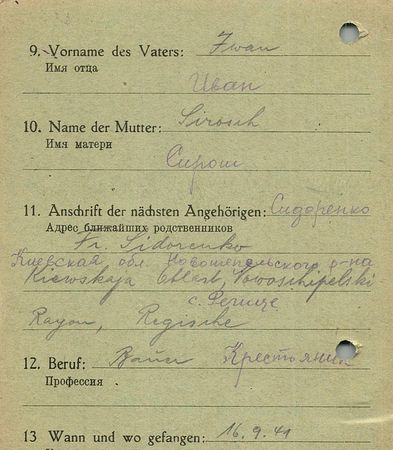 9. Vorname des Vaters: Iwan
Имя отца
Иван
10. Name der Mutter: Sirosch
Имя матери
Сирош
11. Anschrift der nächsten Angehörigen: Сидоренко
Адрес ближайших родственников
Fr. Sidorenko
Киевская обл. р-на
Kiewskaja Oblast, Nowoschipelski-
с.
Rayon, Regische
12. Beruf: Bauer Крестьянин
Профессия
13 Wann und wo gefangen: 16.9.41